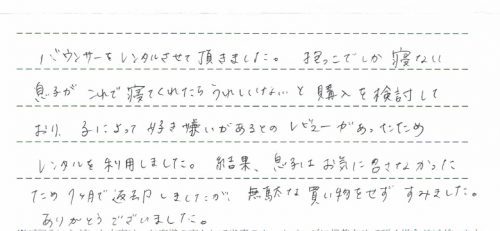 バウンサーをレンタルさせて頂きました。抱っこでしか寝ない
息子がこれで寝てくれたらうれしいなぁと購入を検討して
おり、子によって好き嫌いがあるとのレビューがあったため
レンタルを利用しました。結果、息子はお気に召さなかった
ため1ヶ月で返却しましたが、無駄な買い物をせずすみました。
ありがとうございました。